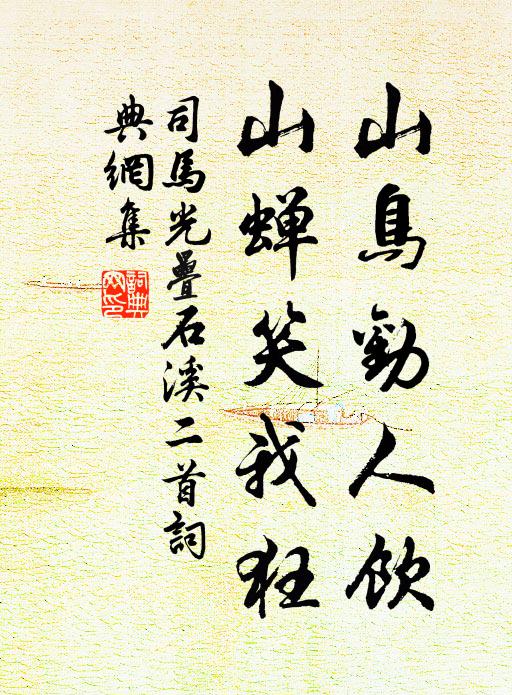 山鳥勸人飲
山蟬笑我狂
司馬光疊石溪二首詞
典網集
詞典
网印